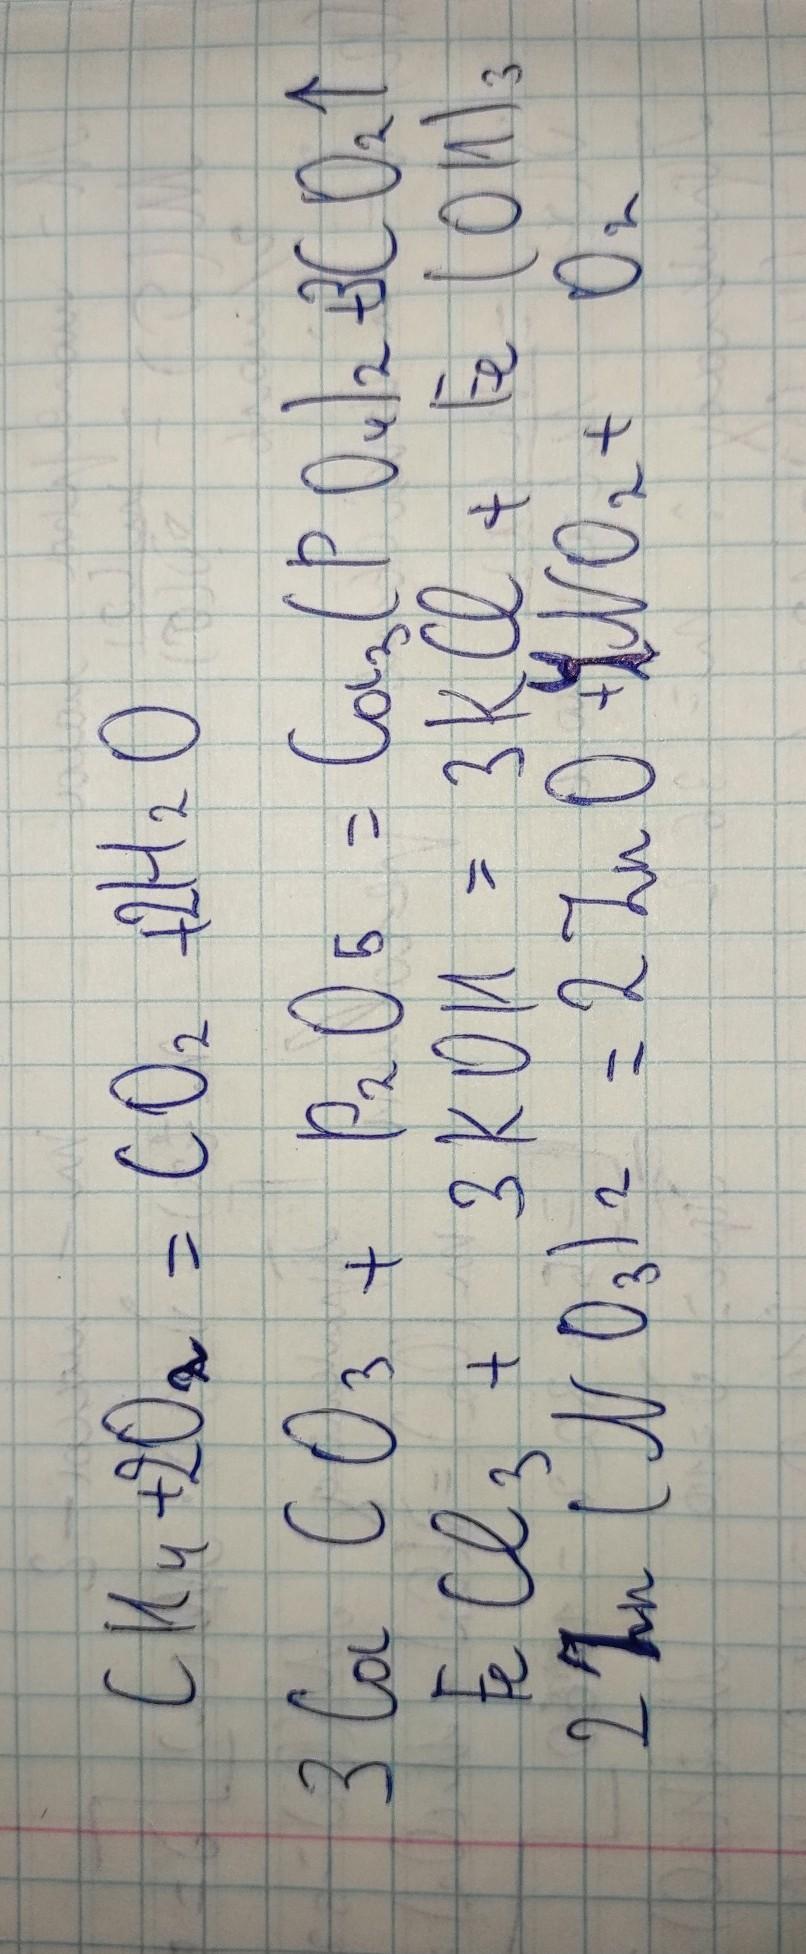 CH₄ + 2O₂ = CO₂ + 2H₂O
3CaCO₃ + P₂O₅ = Ca₃(PO₄)₂ + 3CO₂↑
FeCl₃ + 3KOH = 3KCl + Fe(OH)₃
2Zn(NO₃)₂ = 2ZnO + 4NO₂ + O₂